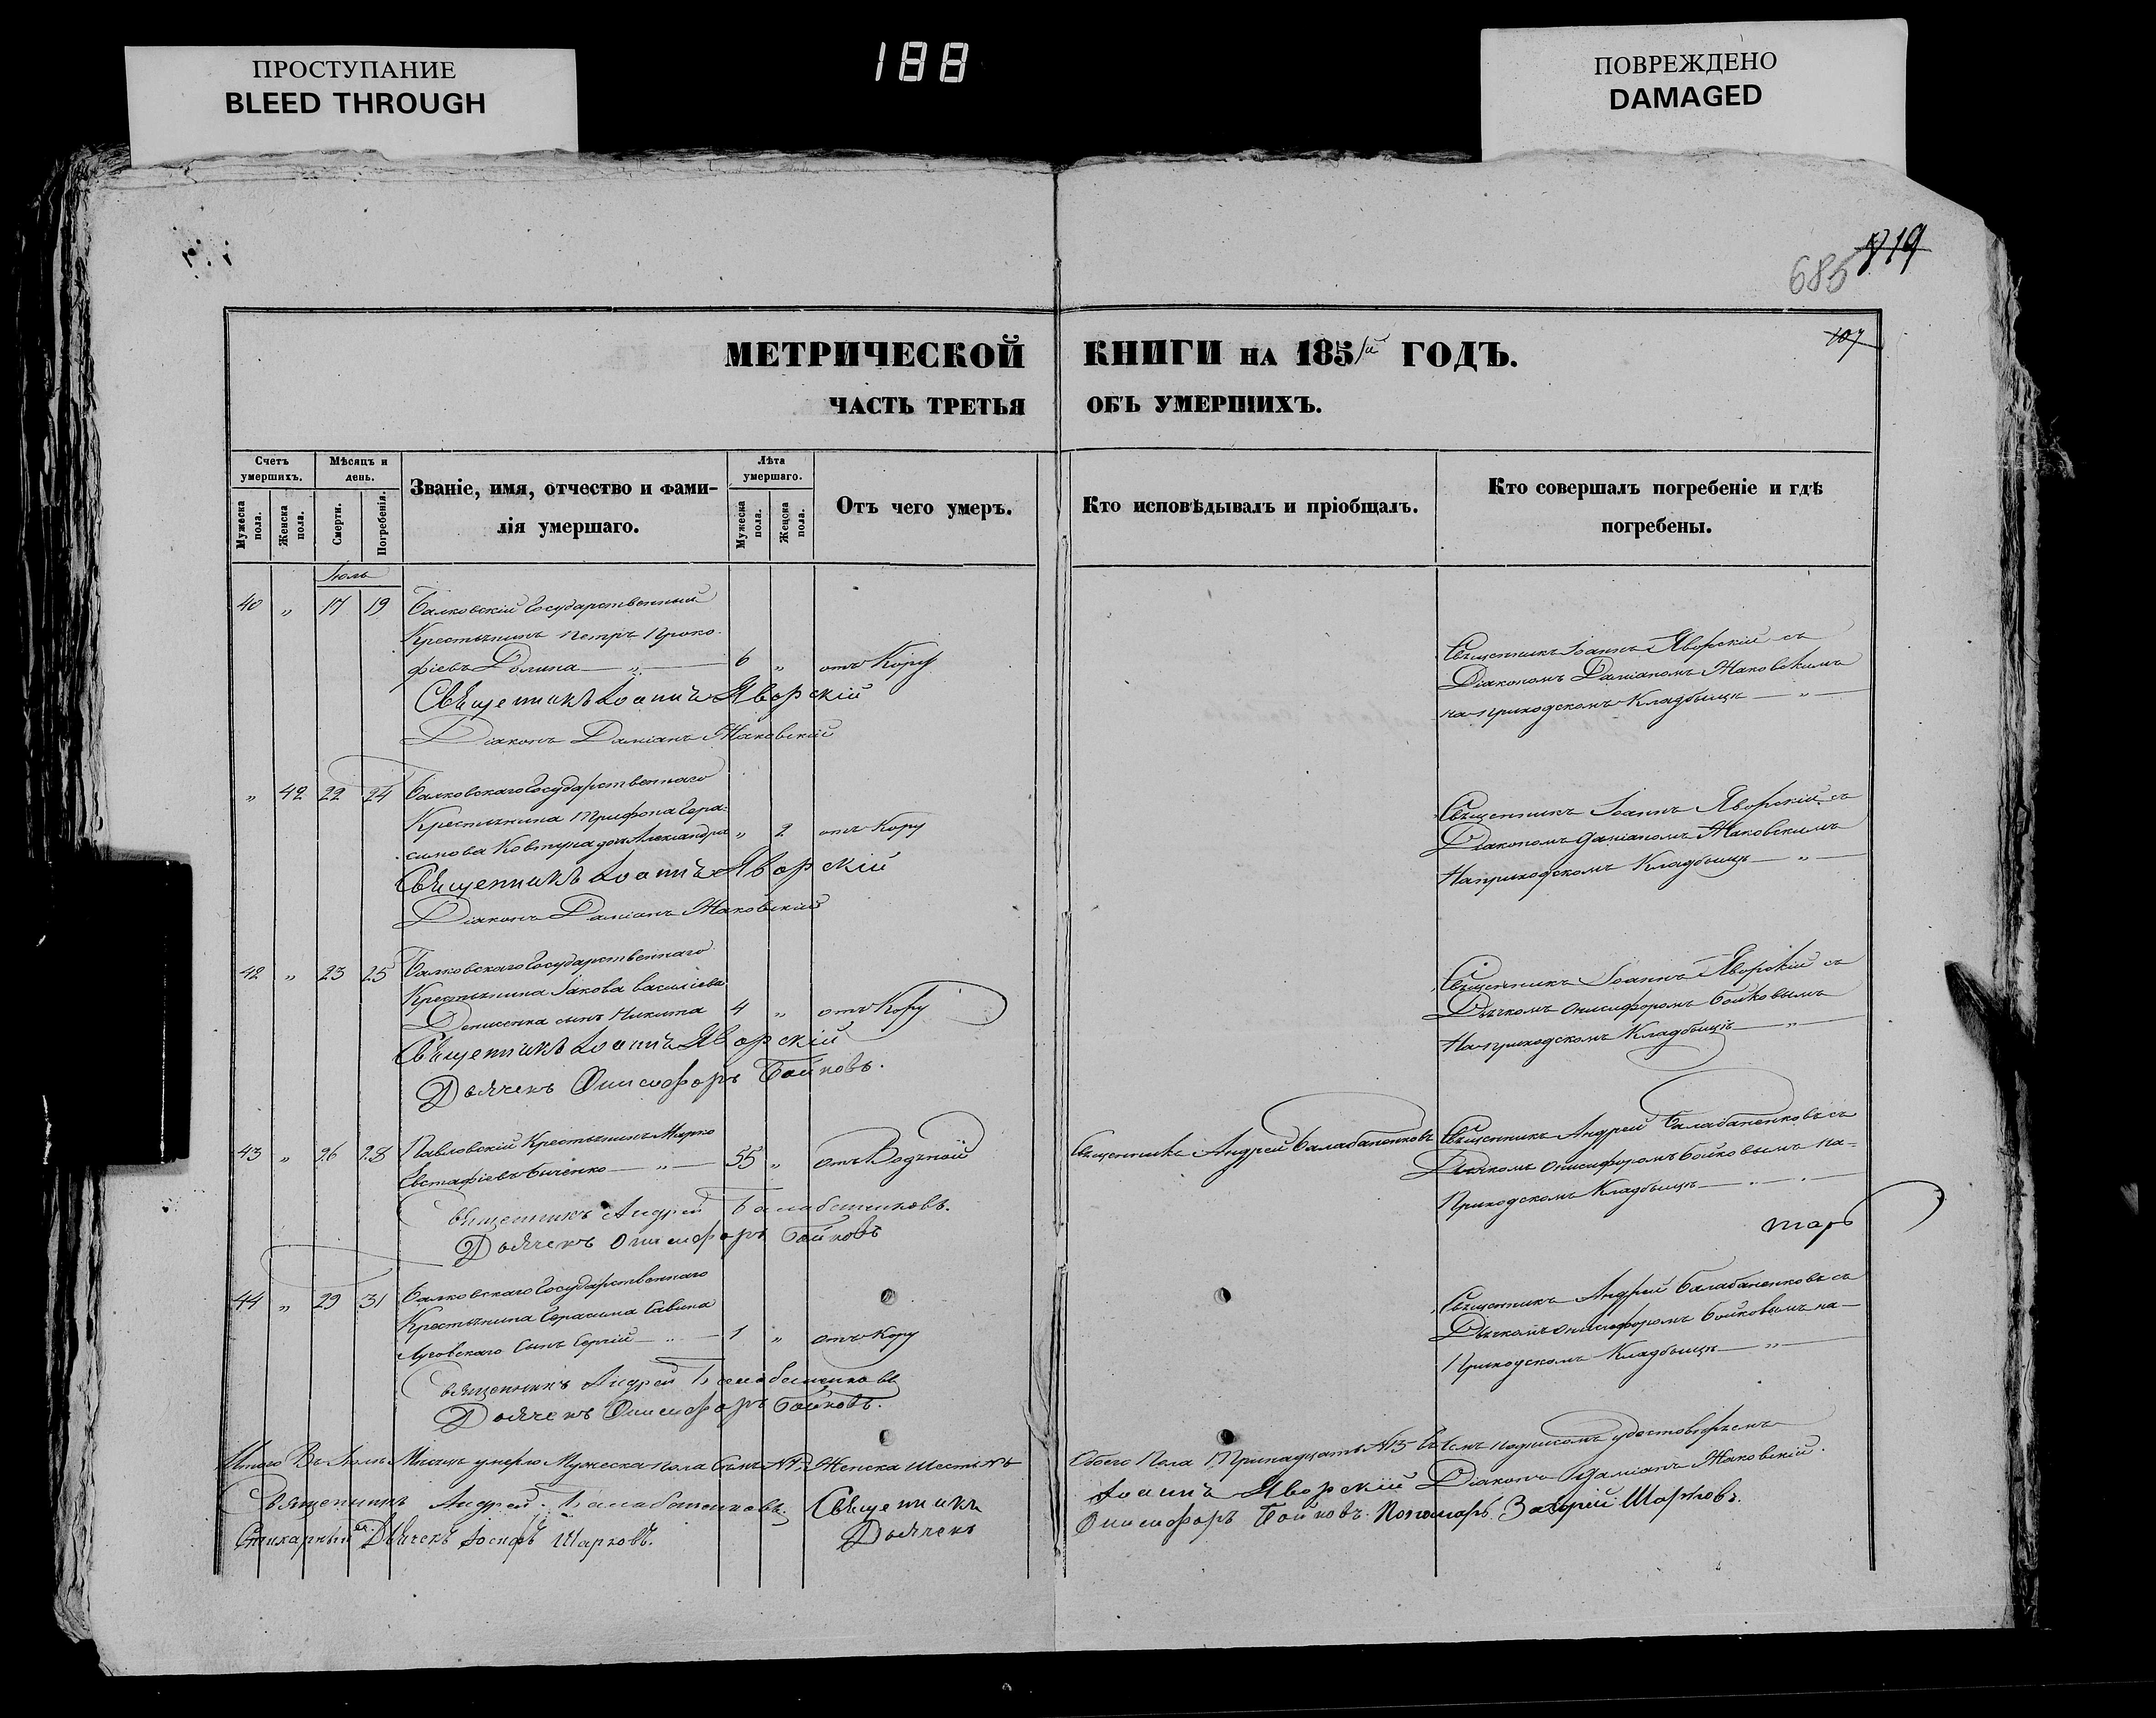 ПРОСТУПАНИЕ
BLEED THROUGH
188
ПОВРЕЖДЕНО
DAMAGED
819
685
107
МЕТРИЧЕСКОЙ КНИГИ НА 1851й ГОДЪ.
ЧАСТЬ ТРЕТЬЯ ОБЪ УМЕРШИХЪ.
Счетъ умершихъ.
Мужеска пола.
Женска пола.
Мѣсяцъ и день.
Смерти.
Погребенія.
Званіе, имя, отчество и фами-
лія умершаго.
Лѣта умершаго.
Мужеска пола.
Женска пола.
Отъ чего умеръ.
Кто исповѣдывалъ и пріобщалъ.
Кто совершалъ погребеніе и гдѣ
погребены.
Іюль
40 " 17 19 Балковскій Государственный
Крестьянинъ Петръ Проко-
фіевъ Долина — " — 6 " отъ Кору
Священникъ Іоаннъ Яворскій
Діаконъ Даміанъ Жаковскій
Священникъ Іоаннъ Яворскій съ
Діакономъ Даміаномъ Жаковскимъ
на приходскомъ Кладбищѣ — " —
" 42 22 24 Балковскаго Государственнаго
Крестьянина Трифона Гера-
симова Ковтуна дочь Александра " 2 отъ Кору
Священникъ Іоаннъ Яворскій
Діаконъ Даміанъ Жаковскій
Священникъ Іоаннъ Яворскій съ
Діакономъ Даміаномъ Жаковскимъ
На приходскомъ Кладбищѣ — " —
42 " 23 25 Балковскаго Государственнаго
Крестьянина Іакова Василіева
Денисенка сынъ Никита 4 " отъ Кору
Священникъ Іоаннъ Яворскій
Дьячекъ Онисифоръ Бойковъ.
Священникъ Іоаннъ Яворскій съ
Дьячкомъ Онисифоромъ Бойковымъ
На приходскомъ Кладбищѣ — " —
43 " 26 28 Павловскій Крестьянинъ Марко
Евстафіевъ Быченко — " — 55 " отъ Водяной
Священникъ Андрей Балабаненковъ.
Дьячекъ Онисифоръ Бойковъ
Священникъ Андрей Балабаненковъ
Священникъ Андрей Балабаненковъ съ
Дьячкомъ Онисифоромъ Бойковымъ на-
Приходскомъ Кладбищѣ — " —
44 " 29 31 Балковскаго Государственнаго
Крестьянина Герасима Савина
Лусовскаго Сынъ Сергій — " — 1 " отъ Кору
Священникъ Андрей Балабаненковъ
Дьячекъ Онисифоръ Бойковъ.
Священникъ Андрей Балабаненковъ съ
Дьячкомъ Онисифоромъ Бойковымъ на-
Приходскомъ Кладбищѣ — " —
Итого Въ Іюлѣ Мѣсяцѣ умерло Мужеска пола Семь №7, Женска Шесть №6 Обоего Пола Тринадцать №13 Въ чемъ подписомъ удостовѣряемъ
Священникъ Андрей Балабаненковъ. Священникъ Іоаннъ Яворскій Діаконъ Даміанъ Жаковскій.
Стихарный Дьячекъ Іосифъ Шарковъ. Дьячекъ Онисифоръ Бойковъ. Пономарь Захарій Шарковъ.